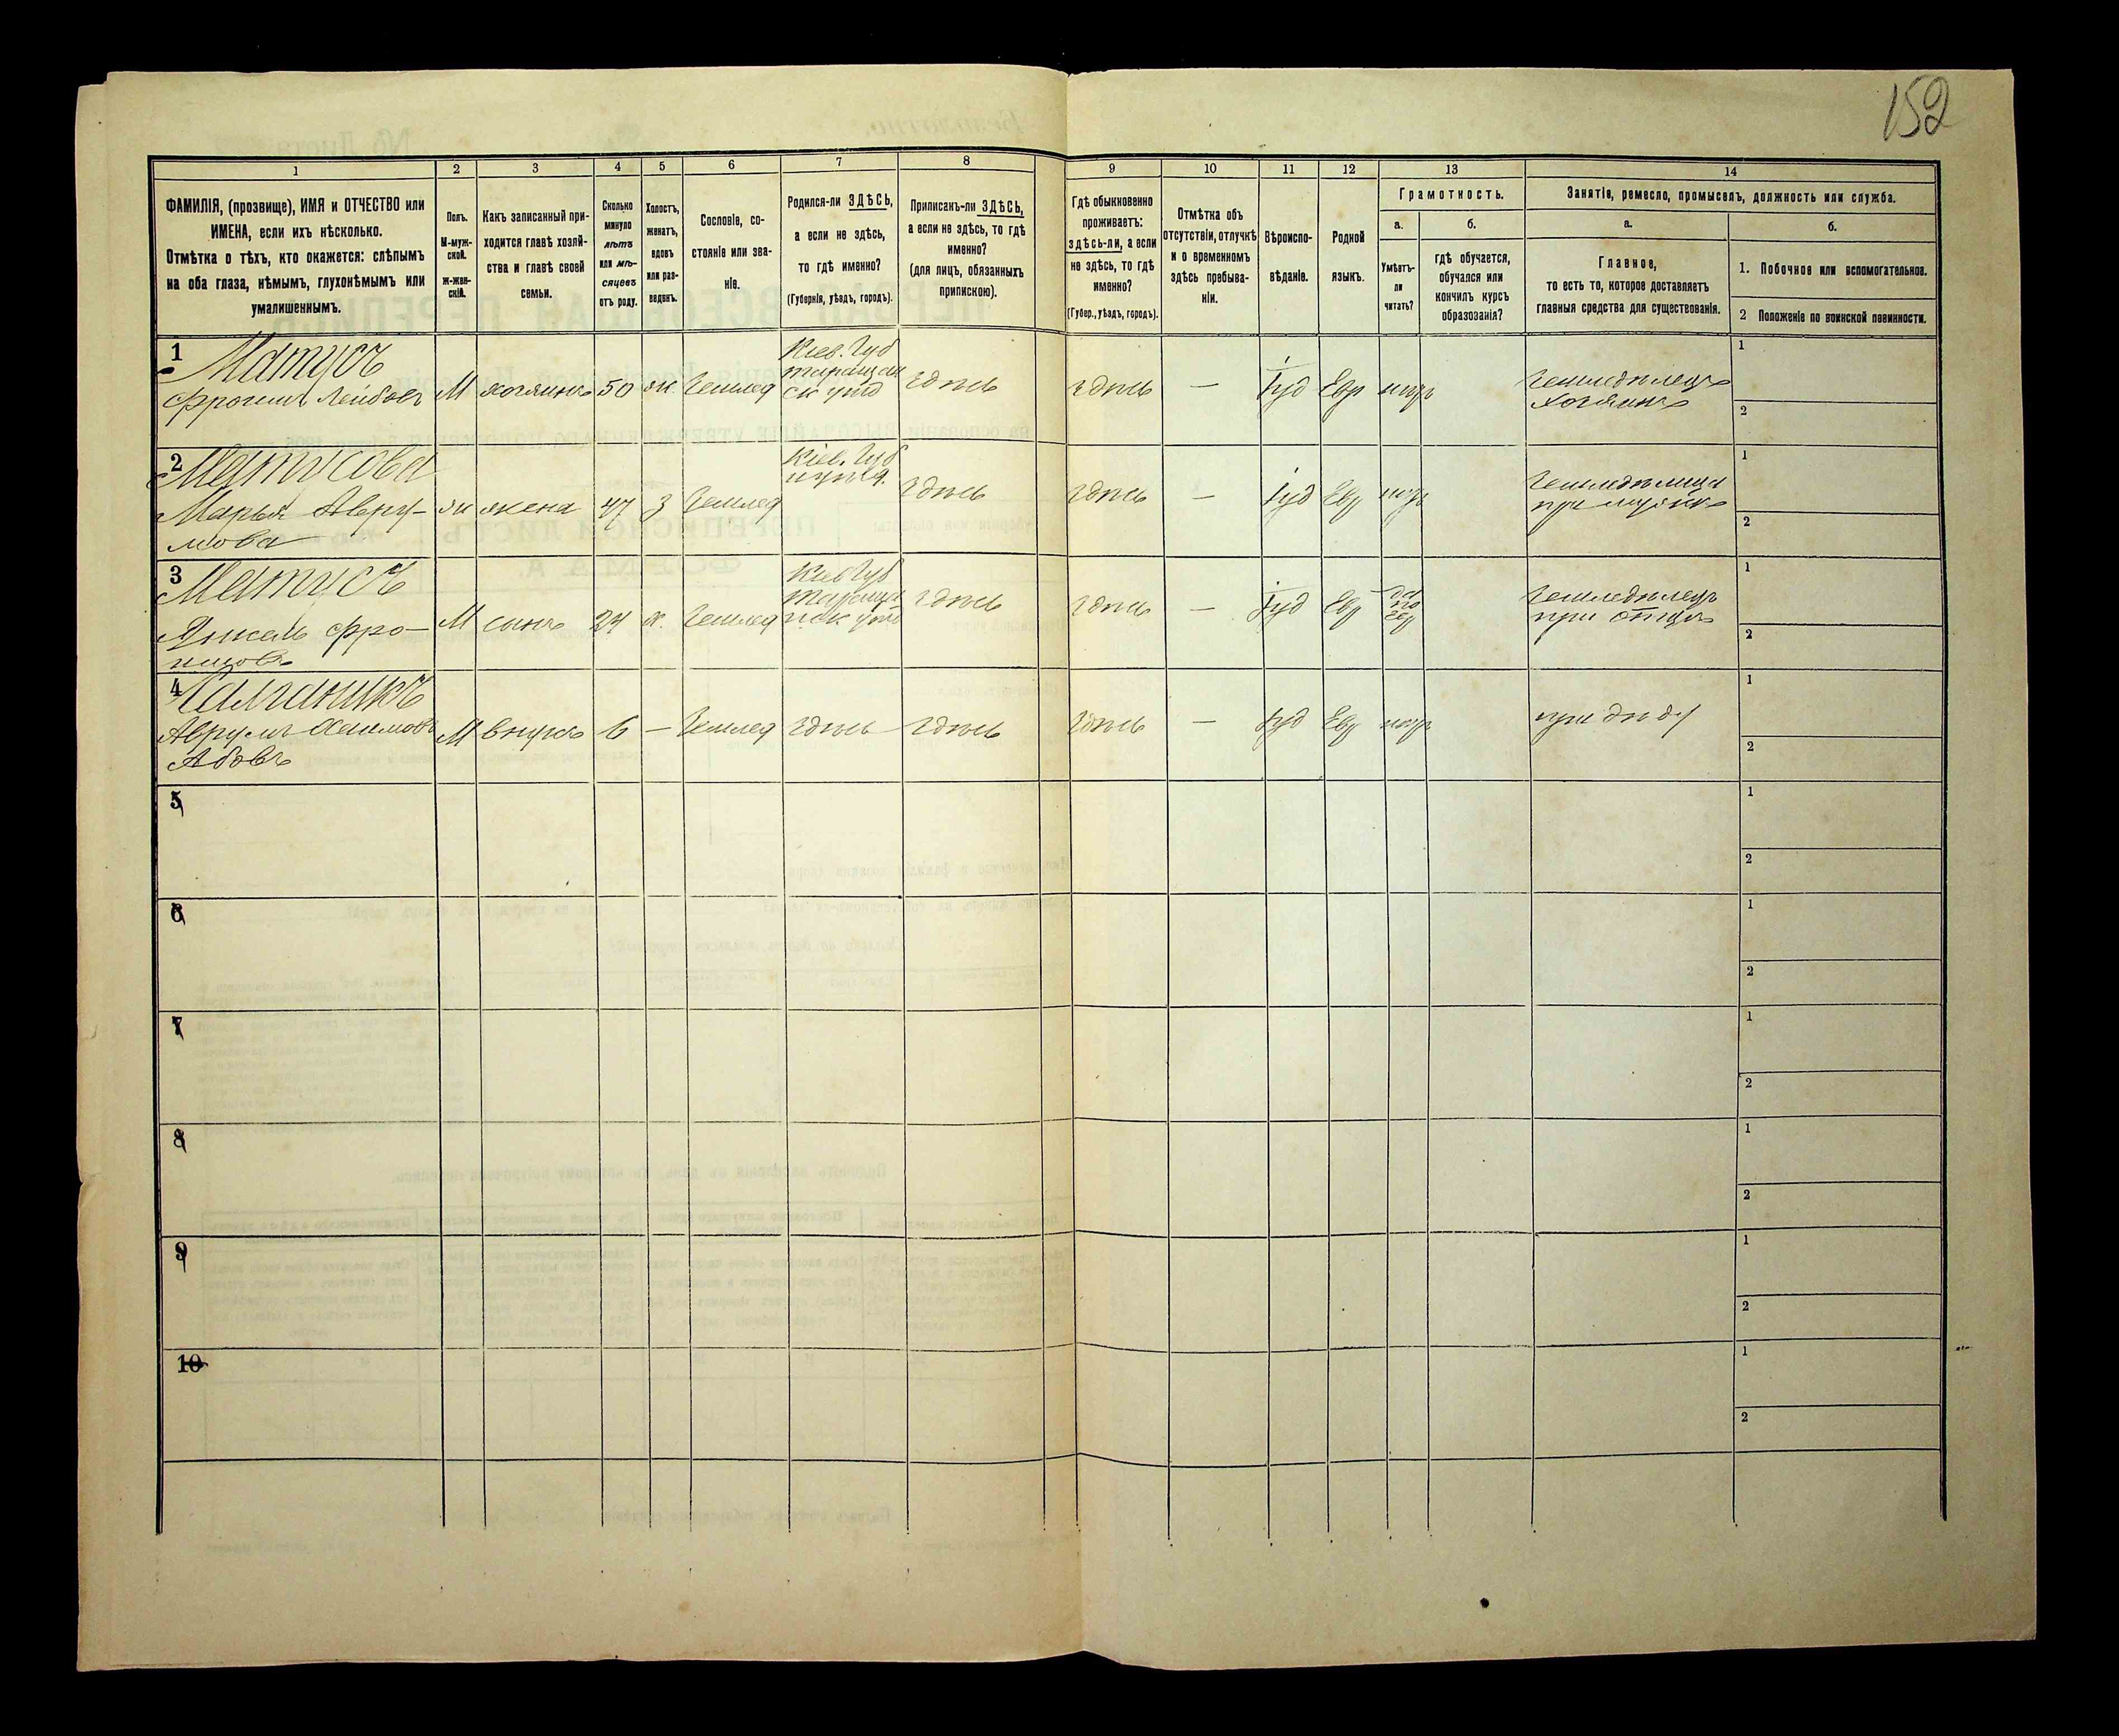 152
1
2
3
4
5
6
7
8
9
10
11
12
13
14
ФАМИЛІЯ, (прозвище), ИМЯ и ОТЧЕСТВО или
ИМЕНА, если ихъ нѣсколько.
Отмѣтка о тѣхъ, кто окажется: слѣпымъ
на оба глаза, нѣмымъ, глухонѣмымъ или
умалишеннымъ.
Полъ.
М-муж-
ской.
Ж-жен-
скій.
Какъ записанный при-
ходится главѣ хозяй-
ства и главѣ своей
семьи.
Сколько
минуло
лѣтъ
или мѣ-
сяцевъ
отъ роду.
Холостъ,
женатъ,
вдовъ
или раз-
веденъ.
Сословіе, со-
стояніе или зва-
ніе.
Родился-ли ЗДѢСЬ,
а если не здѣсь,
то гдѣ именно?
(Губернія, уѣздъ, городъ).
Приписанъ-ли ЗДѢСЬ,
а если не здѣсь, то гдѣ
именно?
(для лицъ, обязанныхъ
припискою).
Гдѣ обыкновенно
проживаетъ:
здѣсь-ли, а если
не здѣсь, то гдѣ
именно?
(Губер., уѣздъ, городъ).
Отмѣтка объ
отсутствіи, отлучкѣ
и о временномъ
здѣсь пребыва-
ніи.
Вѣроиспо-
вѣданіе.
Родной
языкъ.
Грамотность.
а.
Умѣетъ-
ли
читать?
б.
гдѣ обучается,
обучался или
кончилъ курсъ
образованія?
Занятіе, ремесло, промыселъ, должность или служба.
а.
Главное,
то есть то, которое доставляетъ
главныя средства для существованія.
б.
1. Побочное или вспомогательное.
2 Положеніе по воинской повинности.
1
Матусъ
Фроимъ Лейбовъ
М
хозяинъ
50
ж.
Землед
Кіев. Губ
таращан
ск уѣзд
здѣсь
здѣсь
—
Іуд
Евр
негр
Земледѣлецъ
хозяинъ
1
2
2
Матусова
Марья Авру-
мова
ж
жена
47
З
Землед
Кіев. Губ
здѣсь
здѣсь
—
Іуд
Евр
негр
Земледѣлица
при мужѣ
1
2
3
Матусъ
Янкель Фро-
имовъ
М
сынъ
24
х.
Землед
Кіев Губ
здѣсь
здѣсь
—
Іуд
Евр
да
по
евр
Земледѣлецъ
при отцѣ
1
2
4
Аврумъ Хаимовъ
М
внукъ
6
—
Землед
здѣсь
здѣсь
здѣсь
—
Іуд
Евр
негр
при дѣду
1
2
5
1
2
6
1
2
7
1
2
8
1
2
9
1
2
10
1
2